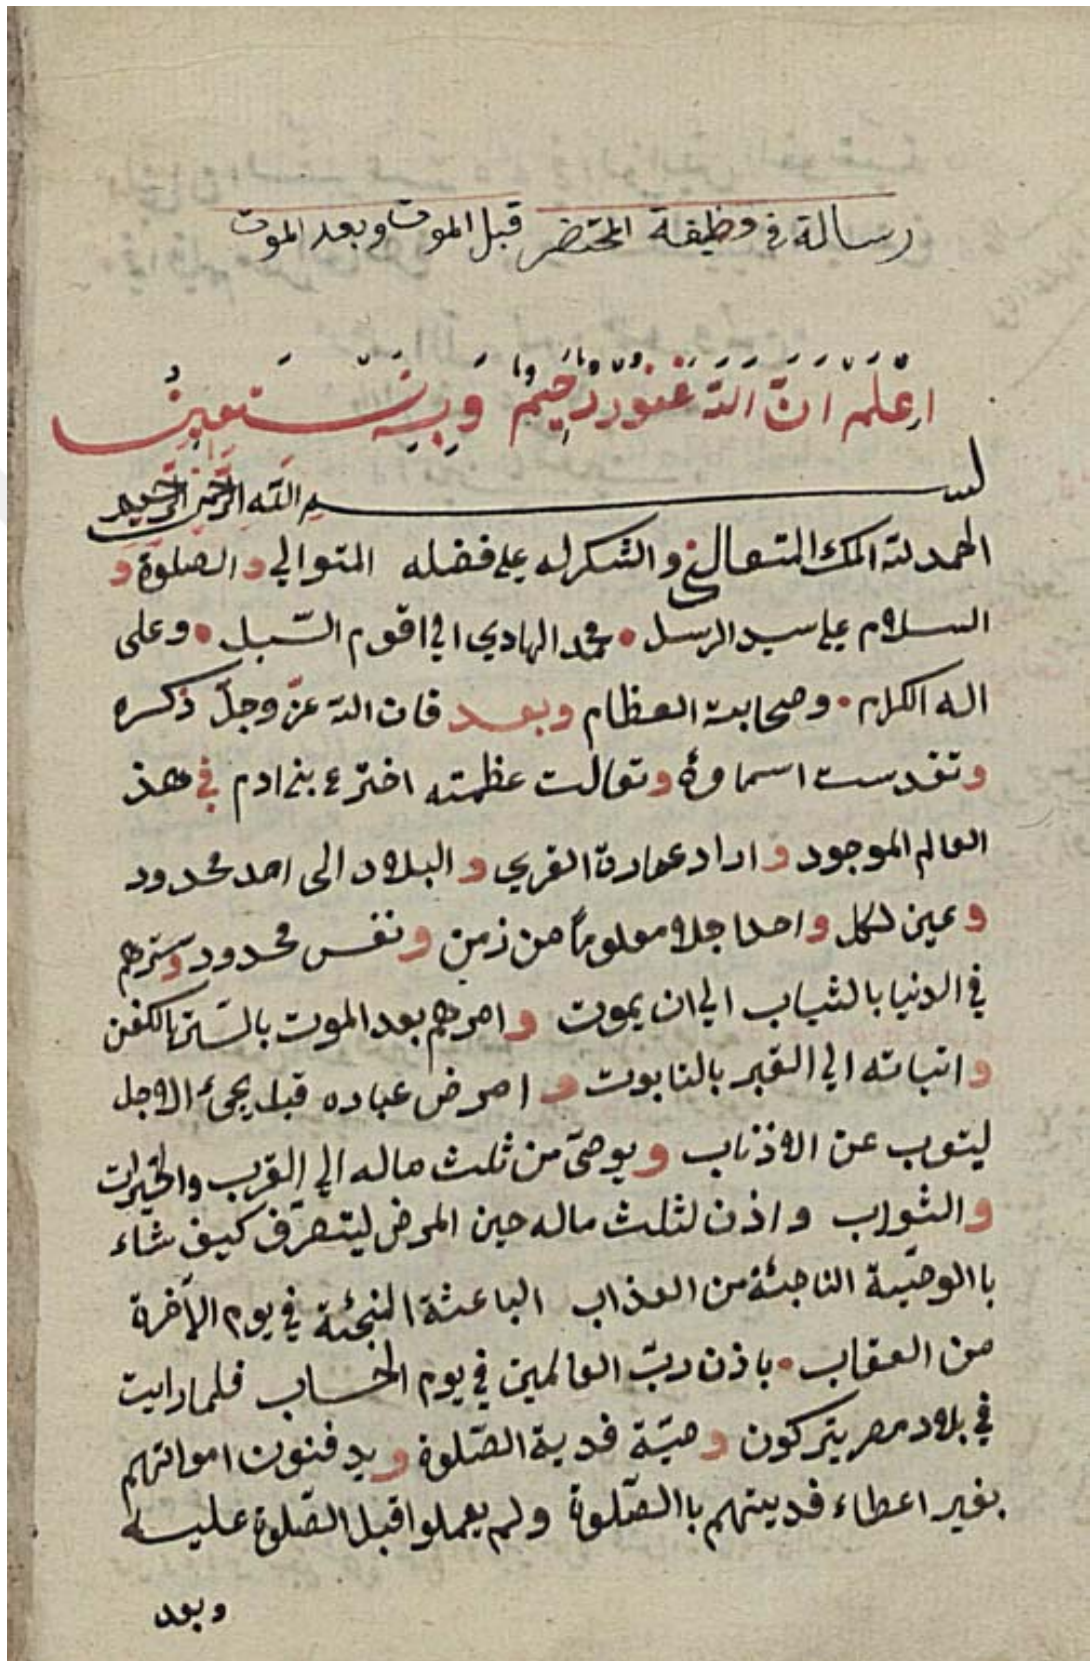 رسالة في وظيفة المحتضر قبل الموت وبعد الموت
اِعْلَمْ اَنَّ اللّٰهَ غَفُورٌ رَحِيمٌ وَبِهِ نَسْتَعِينُ
بسم الله الرحمن الرحيم
الحمد لله الملك المتعالي والشكر له على فضله المتوالي والصلوة و
السلام على سيد الرسل • محمد الهادي الى اقوم السّبل • وعلى
اله الكرام • وصحابته العظام وبعد فان الله عزّ وجلّ ذكره
وتقدست اسماؤه وتعالت عظمته اخترع بنى ادم في هذ
العالم الموجود واراد عمارة القرى والبلاد الى امد محدود
وعين لكل واحد اجلا معلوماً من زمن ونفس محدود وسترهم
في الدنيا بالثياب الى ان يموت وامرهم بعد الموت بالستر بالكفن
واتيانه الى القبر بالتابوت وامرض عباده قبل يجئ الاجل
ليتوب عن الاذناب ويوصى من ثلث ماله الى القرب والخيرات
والثواب واذن لثلث ماله حين المرض ليتصرّف كيف شاء
باالوصّية الناجئة من العذاب الباعثة المنجئة في يوم الآخرة
من العقاب • باذن ربّ العالمين في يوم الحساب فلما رايت
في بلاد مصر يتركون وصيّة فدية الصّلوة ويدفنون امواتهم
بغير اعطاء فديتهم باالصّلوة ولم يعملوا قبل الصّلوة عليه
وبعد